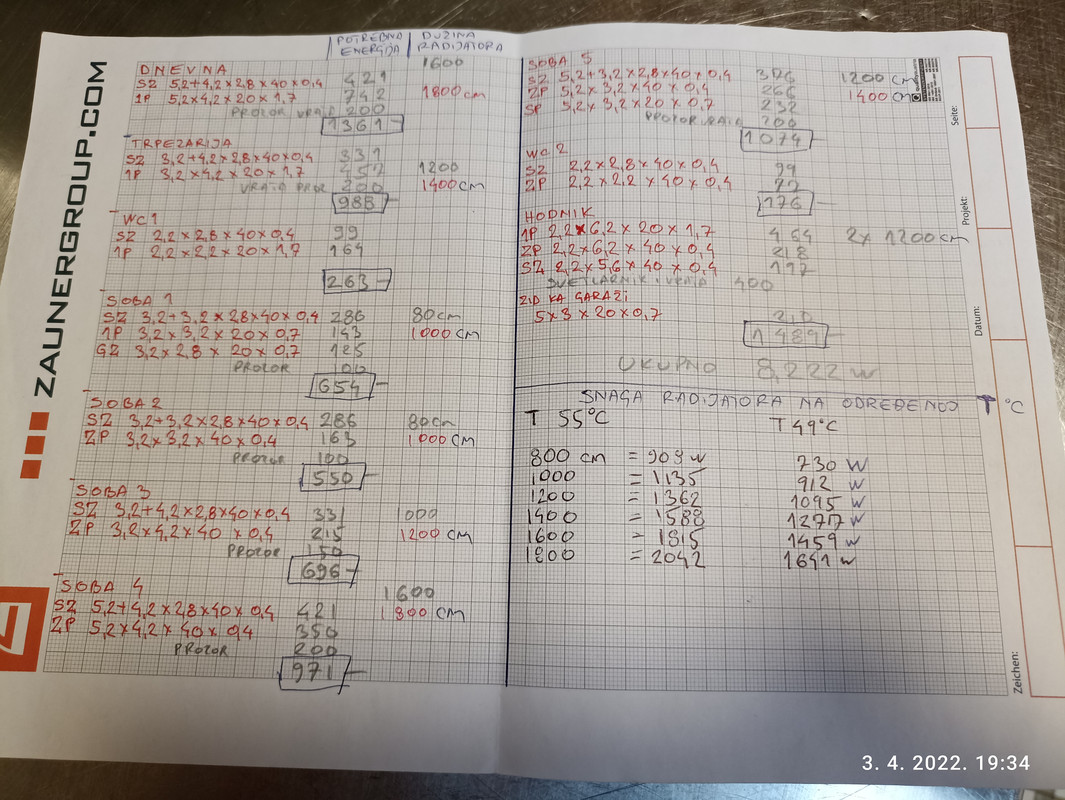 ZAUNERGROUP.COM
POTREBNA ENERGIJA
DUŽINA RADIJATORA
DNEVNA 1600
SZ 5,2+4,2x2,8x40x0,4 421
1P 5,2x4,2x20x1,7 742 1800cm
PROZOR VRATA 200
1361
TRPEZARIJA
SZ 3,2+4,2x2,8x40x0,4 331 1200
1P 3,2x4,2x20x1,7 457 1400cm
VRATA PROZ 200
988
WC1
SZ 2,2x2,8x40x0,4 99
1P 2,2x2,2x20x1,7 164
263
SOBA 1
SZ 3,2+3,2x28x40x0,4 286 80cm
1P 3,2x3,2x20x0,7 143 1000cm
GZ 3,2x2,8x20x0,7 125
PROZOR 100
654
SOBA 2
SZ 3,2+3,2x2,8x40x0,4 286 80cm
ZP 3,2x3,2x40x0,4 163 1000cm
PROZOR 100
550
SOBA 3
SZ 3,2+4,2x2,8x40x0,4 331 1000
ZP 3,2x4,2x40x0,4 215 1200cm
PROZOR 150
696
SOBA 4 1600
SZ 5,2+4,2x2,8x40x0,4 421 1800cm
ZP 5,2x4,2x40x0,4 350
PROZOR 200
971
SOBA 5
SZ 5,2+3,2x2,8x40x0,4 376 1200cm
ZP 5,2x3,2x40x0,4 266 1400cm
SP 5,2x3,2x20x0,7 232
PROZOR VRATA 200
1074
WC 2
SZ 2,2x2,8x40x0,4 99
ZP 2,2x2,2x40x0,4 77
176
HODNIK
1P 2,2x6,2x20x1,7 464 2x1200cm
ZP 2,2x6,2x40x0,4 218
SZ 2,2x5,6x40x0,4 197
SVETLARNIK I VRATA 400
ZID KA GARAŽI
5x3x20x0,7 210
1489
UKUPNO 8,222 W
SNAGA RADIJATORA NA ODREĐENOJ T °C
T 55°C T 49°C
800 cm = 909 W 730 W
1000 = 1135 912 W
1200 = 1362 1095 W
1400 = 1588 1277 W
1600 = 1815 1459 W
1800 = 2042 1641 W
Seite:
Projekt:
Datum:
Zeichen:
3. 4. 2022. 19:34